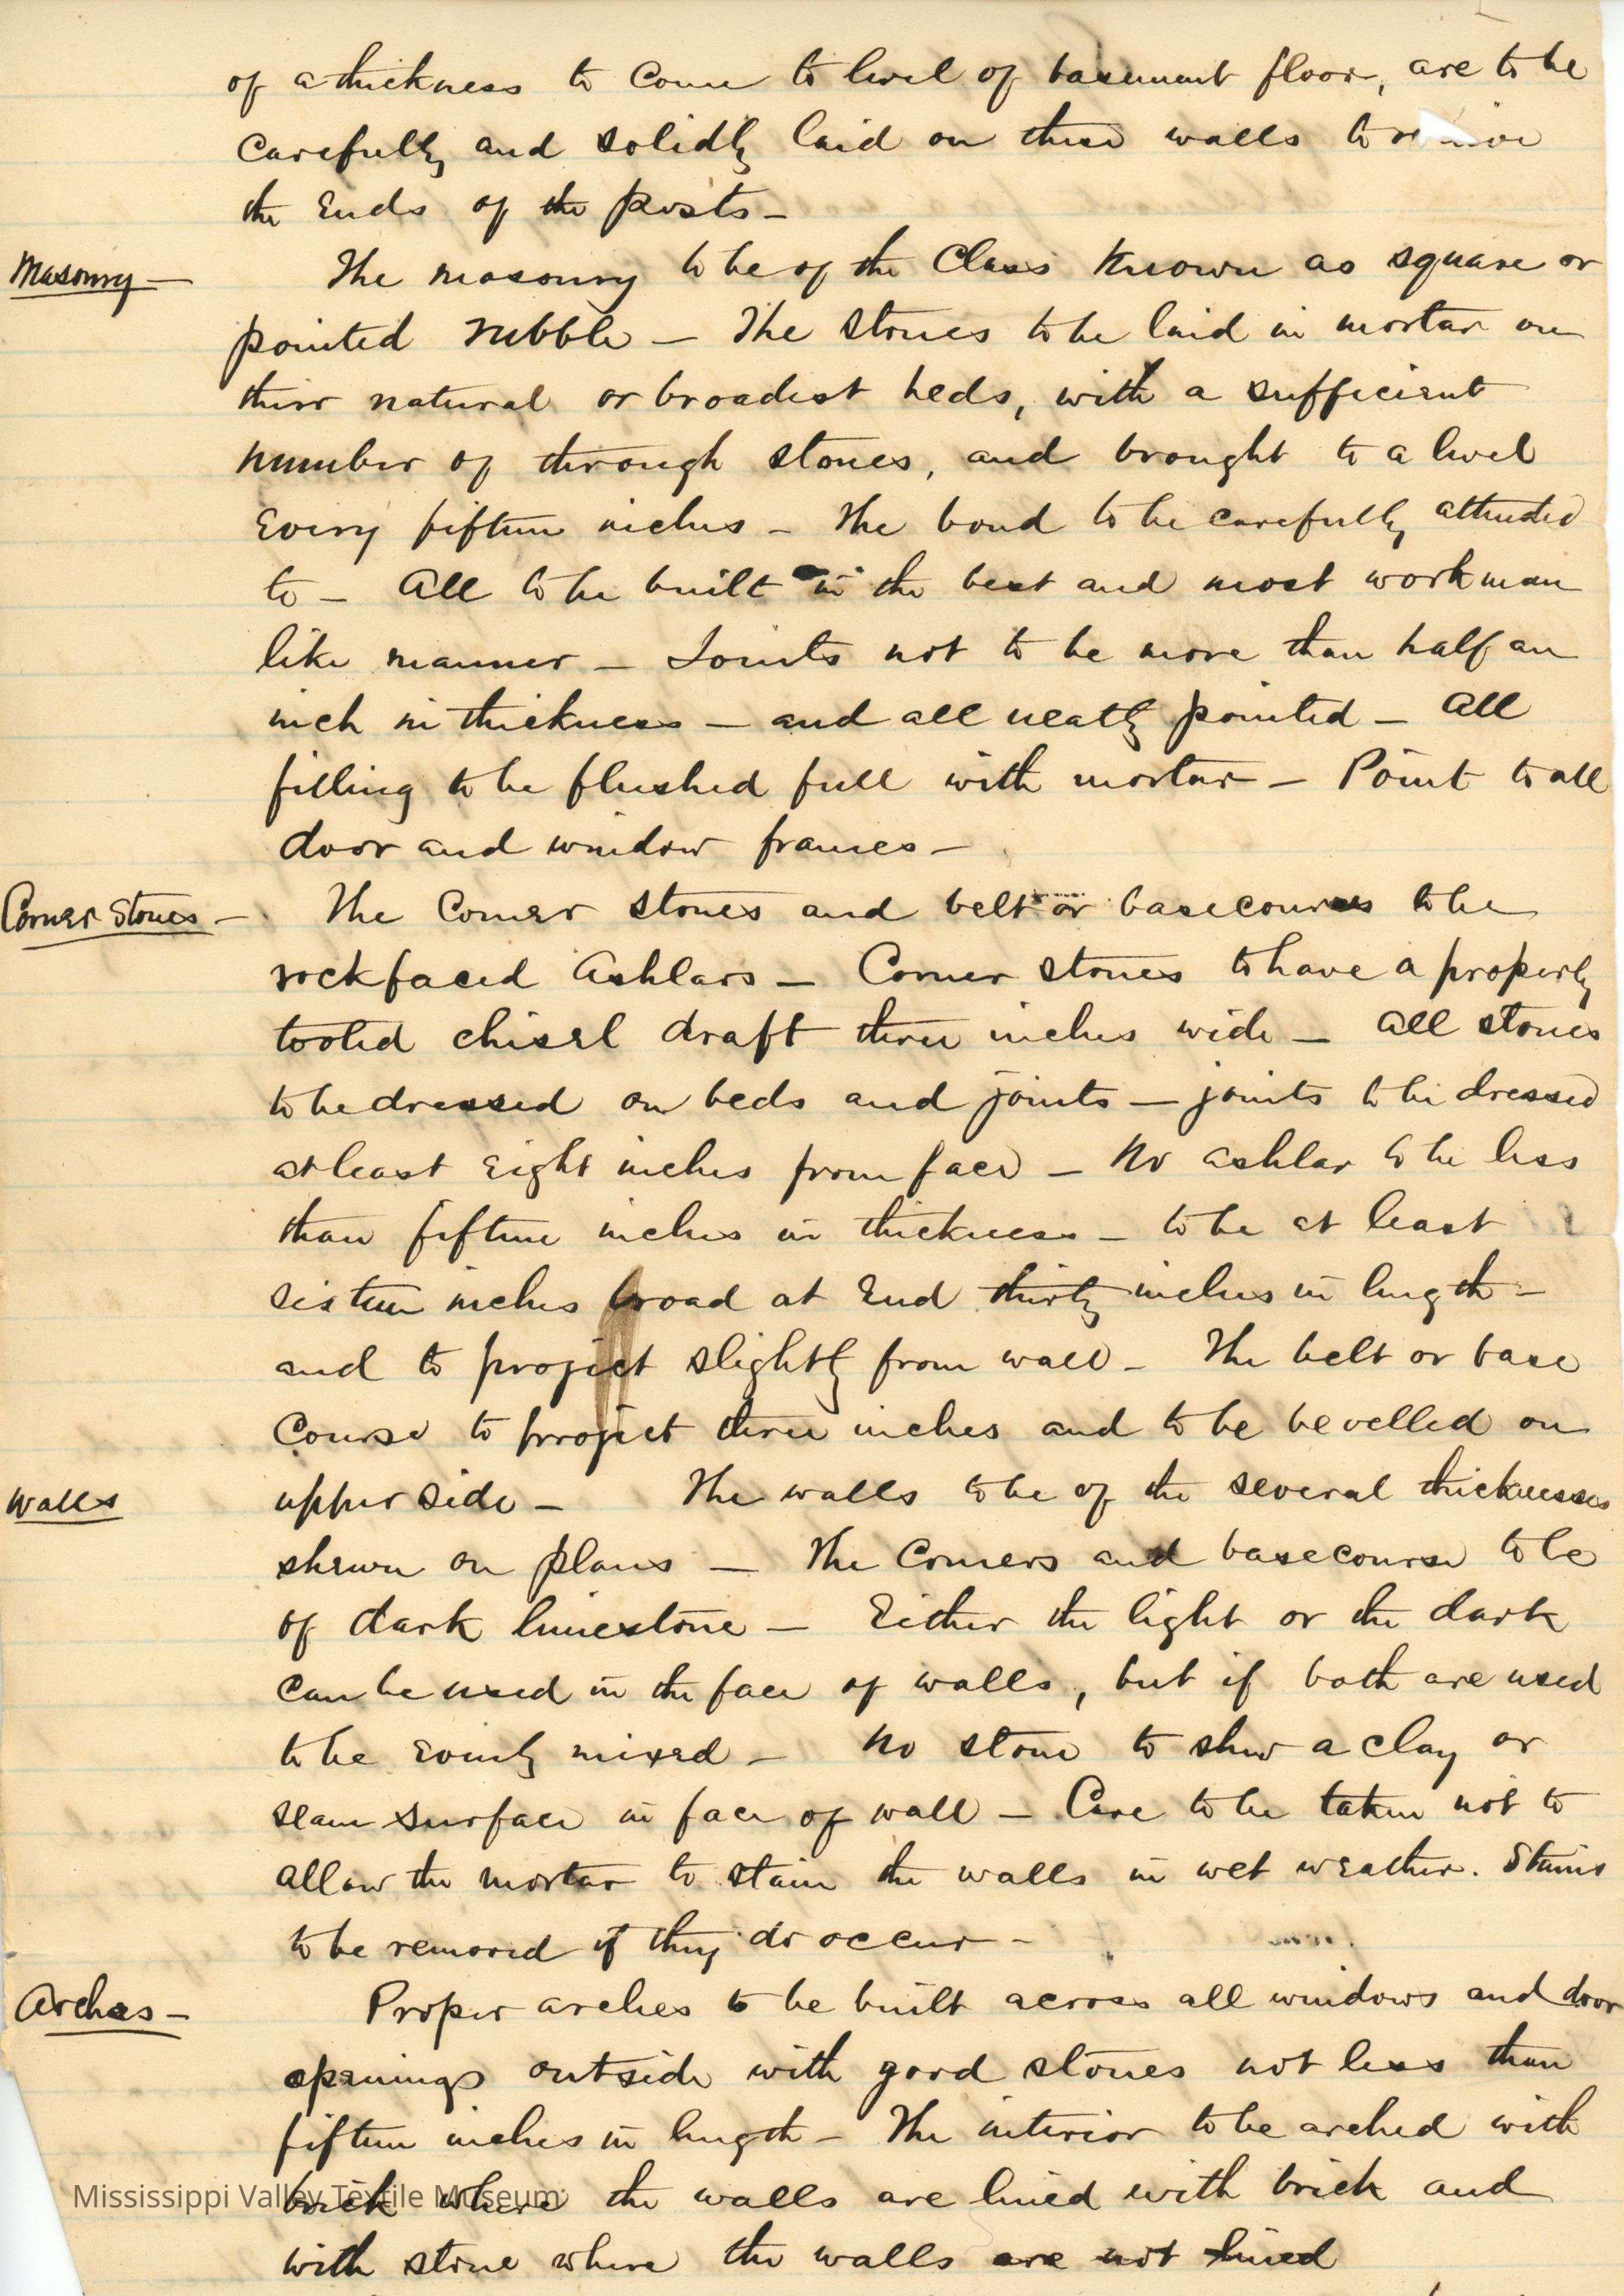 of a thickness to come to level of basement floor, are to be
carefully and solidly laid on these walls to
the Ends of the posts –
Masonry –
The masonry to be of the Class Known as square or
pointed rubble – The stones to be laid in mortar on
their natural or broadest beds, with a sufficient
number of through stones, and brought to a level
Every fifteen inches – The bond to be carefully attended
to – All to be built in the best and most workman
like manner – Joints not to be more than half an
inch in thickness – and all neatly pointed – All
filling to be flushed full with mortar – Point to all
door and window frames –
Corner Stones –
The Corner stones and belt or basecourses to be
rockfaced Ashlars – Corner stones to have a properly
tooled chisel draft three inches wide – All stones
to be dressed on beds and joints – joints to be dressed
at least Eight inches from face – No ashlar to be less
than fifteen inches in thickness – to be at least
sixteen inches broad at End thirty inches in length –
and to project slightly from wall – The belt or base
Course to project three inches and to be bevelled on
upper side –
Walls
The walls to be of the several thicknesses
shewn on plans – The Corners and basecourse to be
of dark limestone – Either the light or the dark
can be used in the face of walls, but if both are used
to be Evenly mixed – No stone to shew a clay or
seam surface in face of wall – Care to be taken not to
allow the mortar to stain the walls in wet weather. Stains
to be removed if they do occur –
Arches –
Proper arches to be built across all windows and door
openings outside with good stones not less than
fifteen inches in length – The interior to be arched with
brick where the walls are lined with brick and
with stone where the walls are not lined
Mississippi Valley Textile Museum